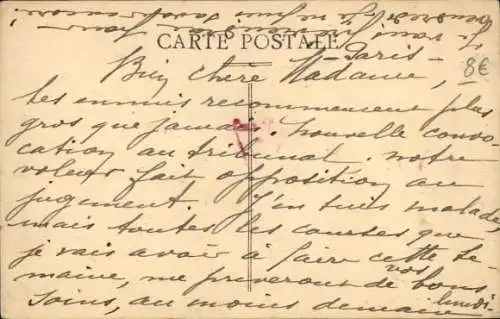 CARTE POSTALE
Paris -
8€
Bien chère Madame,
Les ennuis recommencent plus
gros que jamais. Nouvelle convo-
cation au tribunal. notre
voleur fait opposition au
jugement. J'en suis malade,
mais toutes les courses que
je vais avoir à faire cette se
maine, me priveront de vos bons
soins, au moins demain lundi-